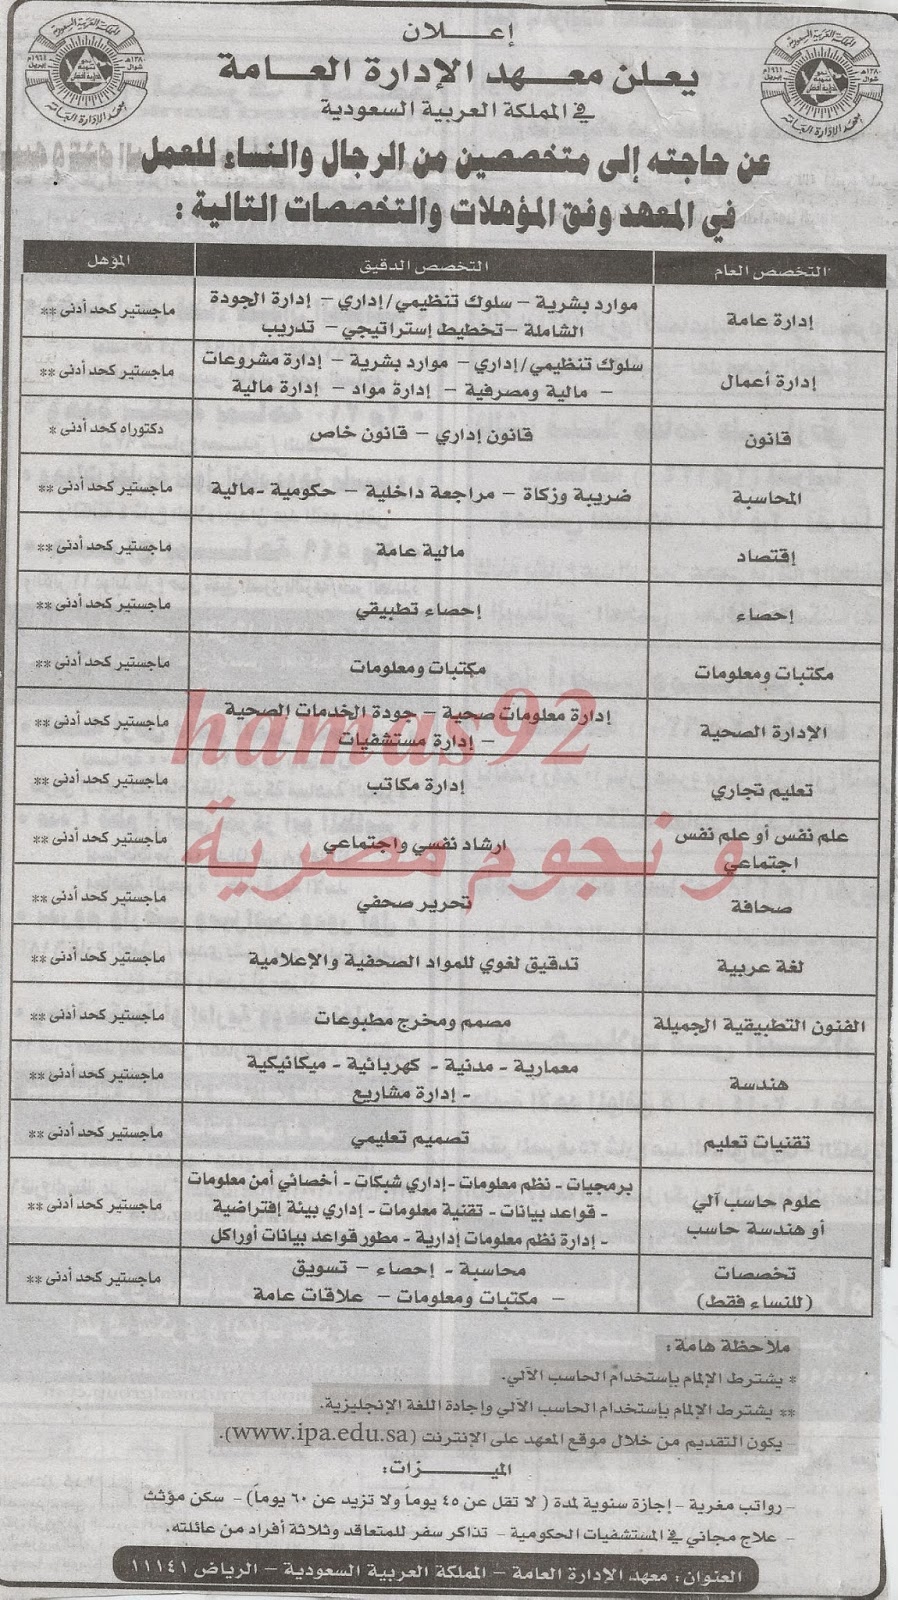 إعلان
يعلن معهد الإدارة العامة
في المملكة العربية السعودية
عن حاجته إلى متخصصين من الرجال والنساء للعمل
في المعهد وفق المؤهلات والتخصصات التالية :
التخصص العام	التخصص الدقيق	المؤهل
إدارة عامة	موارد بشرية - سلوك تنظيمي/إداري - إدارة الجودة	ماجستير كحد أدنى **
الشاملة - تخطيط إستراتيجي - تدريب
إدارة أعمال	سلوك تنظيمي/إداري - موارد بشرية - إدارة مشروعات	ماجستير كحد أدنى **
- مالية ومصرفية - إدارة مواد - إدارة مالية
قانون	قانون إداري - قانون خاص	دكتوراه كحد أدنى *
المحاسبة	ضريبة وزكاة - مراجعة داخلية - حكومية -مالية	ماجستير كحد أدنى **
إقتصاد	مالية عامة	ماجستير كحد أدنى **
إحصاء	إحصاء تطبيقي	ماجستير كحد أدنى **
مكتبات ومعلومات	مكتبات ومعلومات	ماجستير كحد أدنى **
الإدارة الصحية	إدارة معلومات صحية - جودة الخدمات الصحية	ماجستير كحد أدنى **
- إدارة مستشفيات
تعليم تجاري	إدارة مكاتب	ماجستير كحد أدنى **
علم نفس أو علم نفس	ارشاد نفسي واجتماعي	ماجستير كحد أدنى **
اجتماعي
صحافة	تحرير صحفي	ماجستير كحد أدنى **
لغة عربية	تدقيق لغوي للمواد الصحفية والإعلامية	ماجستير كحد أدنى **
الفنون التطبيقية الجميلة	مصمم ومخرج مطبوعات	ماجستير كحد أدنى **
هندسة	معمارية - مدنية - كهربائية - ميكانيكية	ماجستير كحد أدنى **
- إدارة مشاريع
تقنيات تعليم	تصميم تعليمي	ماجستير كحد أدنى **
علوم حاسب آلي	برمجيات - نظم معلومات - إداري شبكات - أخصائي أمن معلومات
أو هندسة حاسب	- قواعد بيانات - تقنية معلومات - إداري بيئة إفتراضية	ماجستير كحد أدنى **
- إدارة نظم معلومات إدارية - مطور قواعد بيانات أوراكل
تخصصات	محاسبة - إحصاء - تسويق	ماجستير كحد أدنى **
(للنساء فقط)	- مكتبات ومعلومات - علاقات عامة
hamas92
و نجوم مصرية
ملاحظة هامة :
* يشترط الإلمام بإستخدام الحاسب الآلي.
** يشترط الإلمام بإستخدام الحاسب الآلي وإجادة اللغة الإنجليزية.
- يكون التقديم من خلال موقع المعهد على الإنترنت (www.ipa.edu.sa).
الميزات :
- رواتب مغرية - إجازة سنوية لمدة ( لا تقل عن ٤٥ يوماً ولا تزيد عن ٦٠ يوماً) - سكن مؤثث
- علاج مجاني في المستشفيات الحكومية - تذاكر سفر للمتعاقد وثلاثة أفراد من عائلته.
العنوان : معهد الإدارة العامة - المملكة العربية السعودية - الرياض ١١١٤١